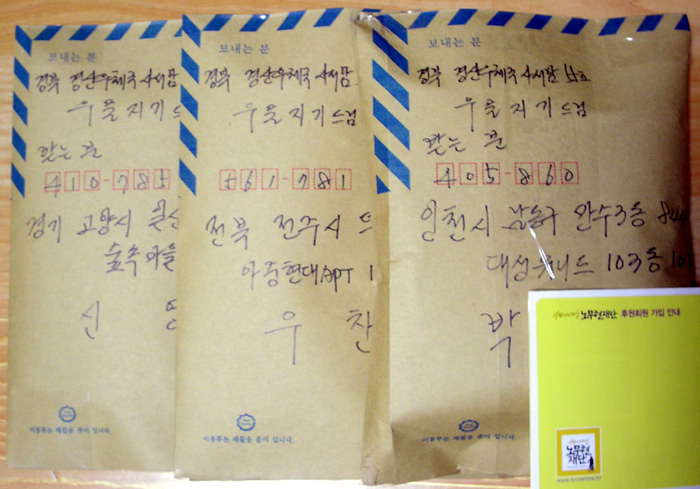 보내는 분
경북 경산우체국 사서함
우물지기 드림
받는 분
410-785
경기 고양시 일산
숲속마을
신 영
이 봉투는 재활용 종이 입니다.
보내는 분
경북 경산우체국 사서함
우물지기 드림
561-781
전북 전주시 드
아중현대APT 1
우 찬
이 봉투는 재활용 종이 입니다.
보내는 분
경북 경산우체국 사서함
우물지기 드림
받는 분
405-860
인천시 남동구 만수3동 844
대성유니드 103동 102
박
이 봉투는 재활용 종이 입니다.
노무현재단 후원회원 가입 안내
노무현
재단